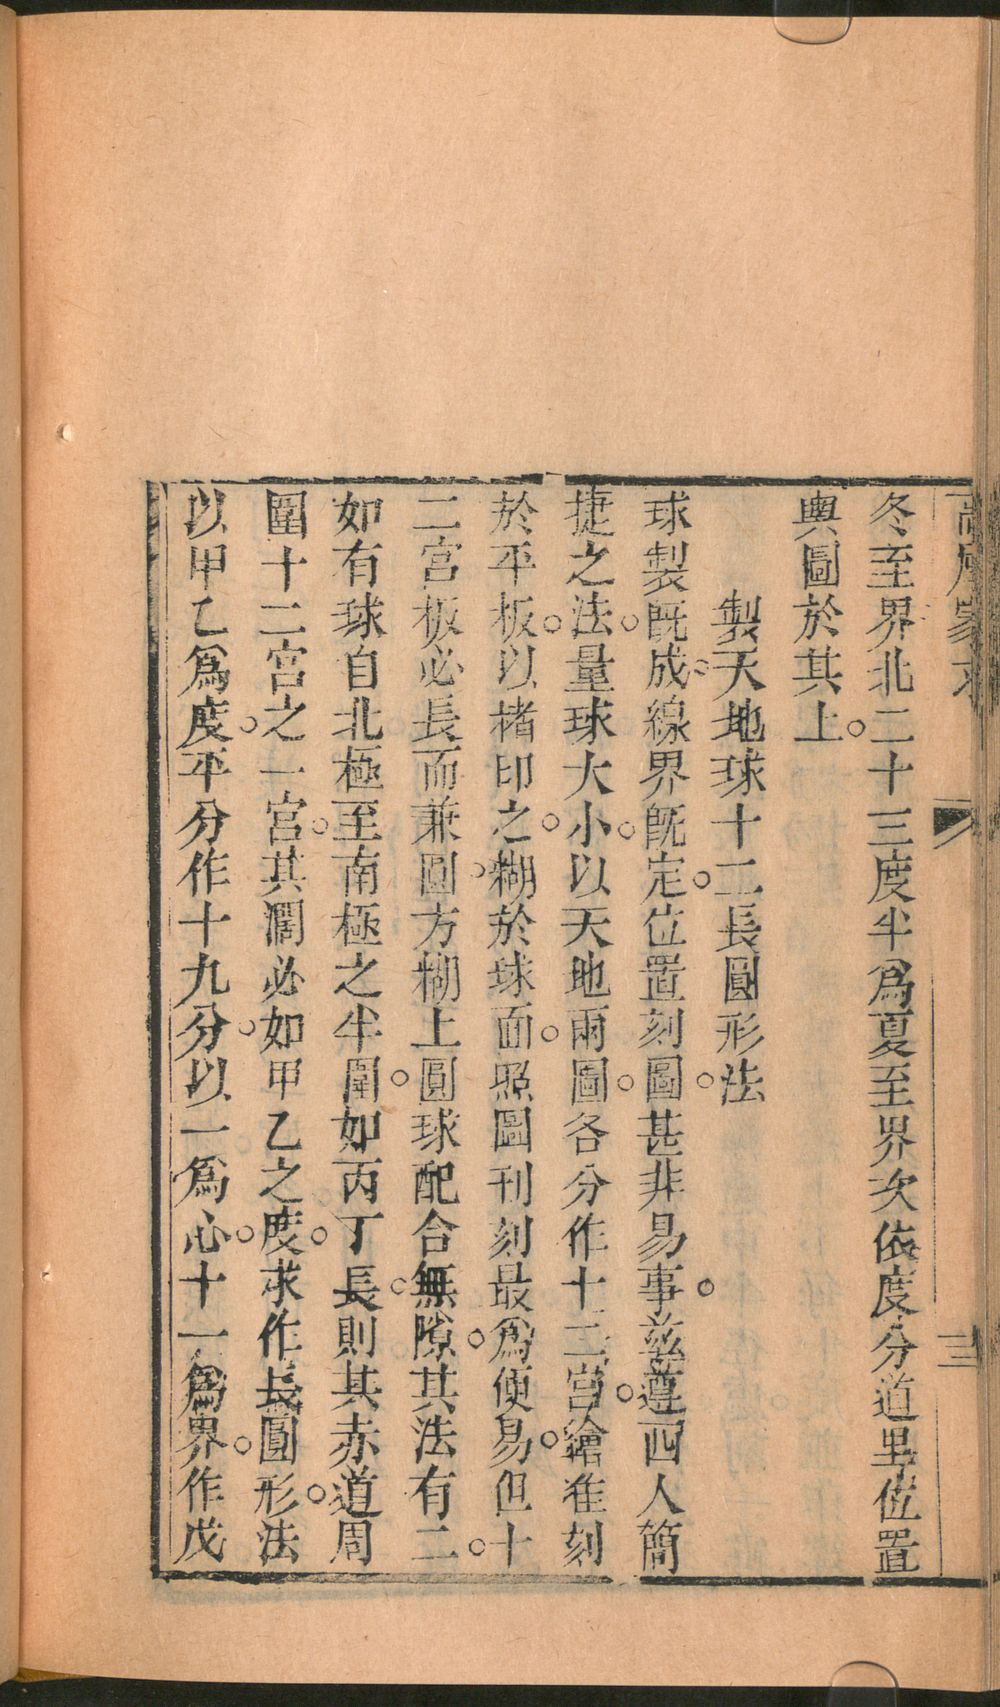 冬至界北二十三度半爲夏至界次依度分道里位置
輿圖於其上。
製天地球十二長圓形法
球製既成線界既定。位置刻圖。甚非易事。茲遵西人簡
捷之法。量球大小。以天地兩圖。各分作十二宮。繪准刻
於平板。以楮印之。糊於球面。照圖刊刻最爲便易。但十
二宮板必長而兼圓。方糊上圓球配合無隙。其法有二。
如有球自北極至南極之半圍。如丙丁長。則其赤道周
圍十二宮之一宮。其濶必如甲乙之度。求作長圓形。法
以甲乙爲度。平分作十九分。以一爲心。十一爲界。作戊
三